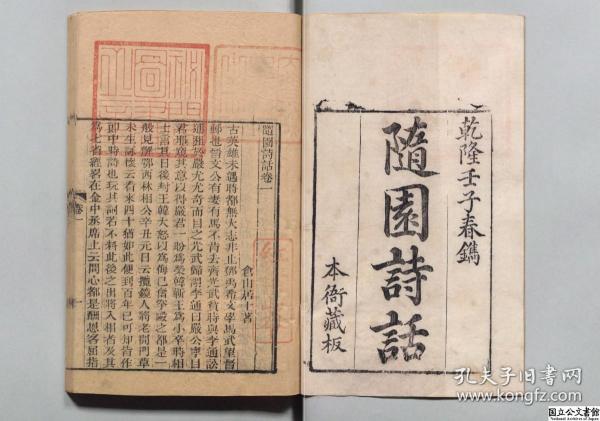 乾隆壬子春鐫
隨園詩話
本衙藏板
隨園詩話卷一
倉山居士著
古英雄未遇時都無大志非止鄧禹希文學馬武望督
郵也晉文公有妻有馬不肯去齊光武貧時與李通訟
逋租於嚴尤尤奇而目之光武歸謂李通曰嚴公寧目
君耶窺其意以得嚴君一盼為榮韓蘄王為小卒時相
士言其日後封王韓大怒以為侮己奮拳毆之都是一
般見解鄂西林相公辛丑元日云攬鏡人將老開門草
未生詠懷云看來四十猶如此便到百年已可知皆作
郎中時詩也玩其詞若不料此後之出將入相者及其
為七省經略在金中丞席上云問心都是酬恩客屈指
卷一
一
孔夫子旧书网
www.kongfz.com
国立公文書館
National Archives of Japan